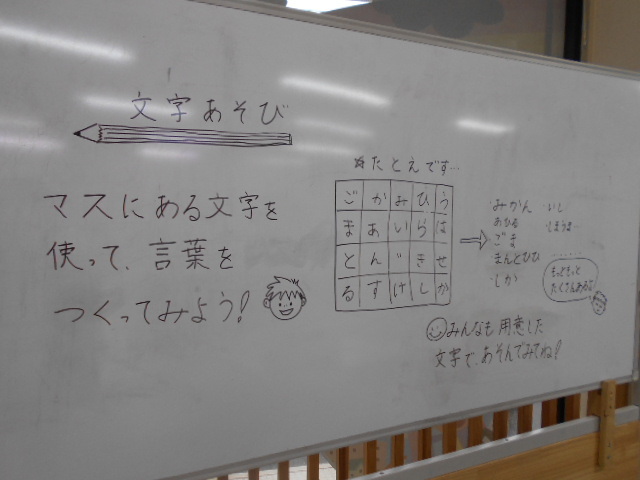 文字あそび
マスにある文字を
使って、言葉を
つくってみよう!
☆たとえです…
ごかみひう
まあいらは
とん゛きせ
るすけしか
みかん
あひる
ごま
しか
いし
しまうま
もっともっと
たくさんあるよ
みんなも用意した
文字で、あそんでみてね!